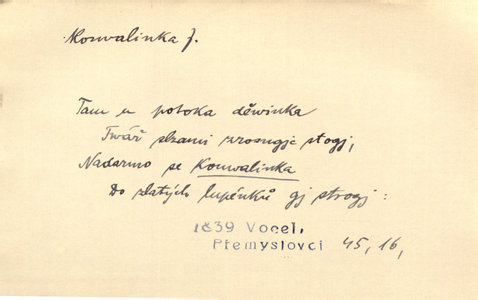 Konwalinka f.
Tam u potoka děwinka
Twář slzami zrosugjc stogj,
Nadarmo se Konwalinka
Do zlatých lupénků gj strogj:
1839 Vocel,
Přemyslovci 45, 16,